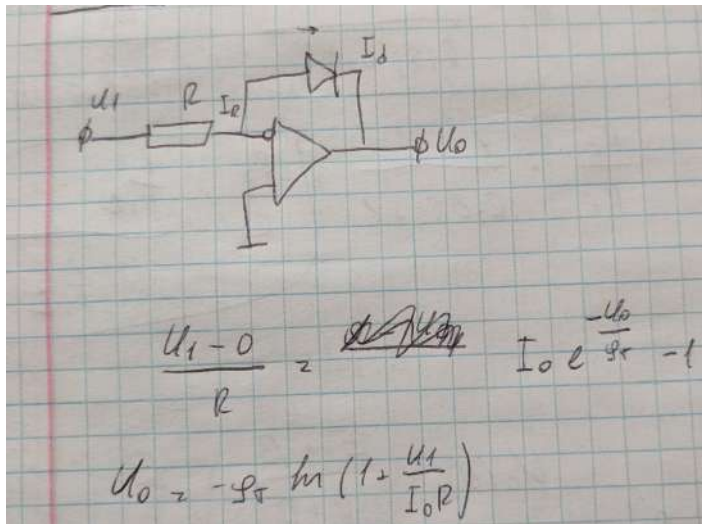 U1 R I_R I_d U0
(U1 - 0)/R = I0 e^(-U0/φT) - 1
U0 = -φT ln(1 + U1/(I0 R))